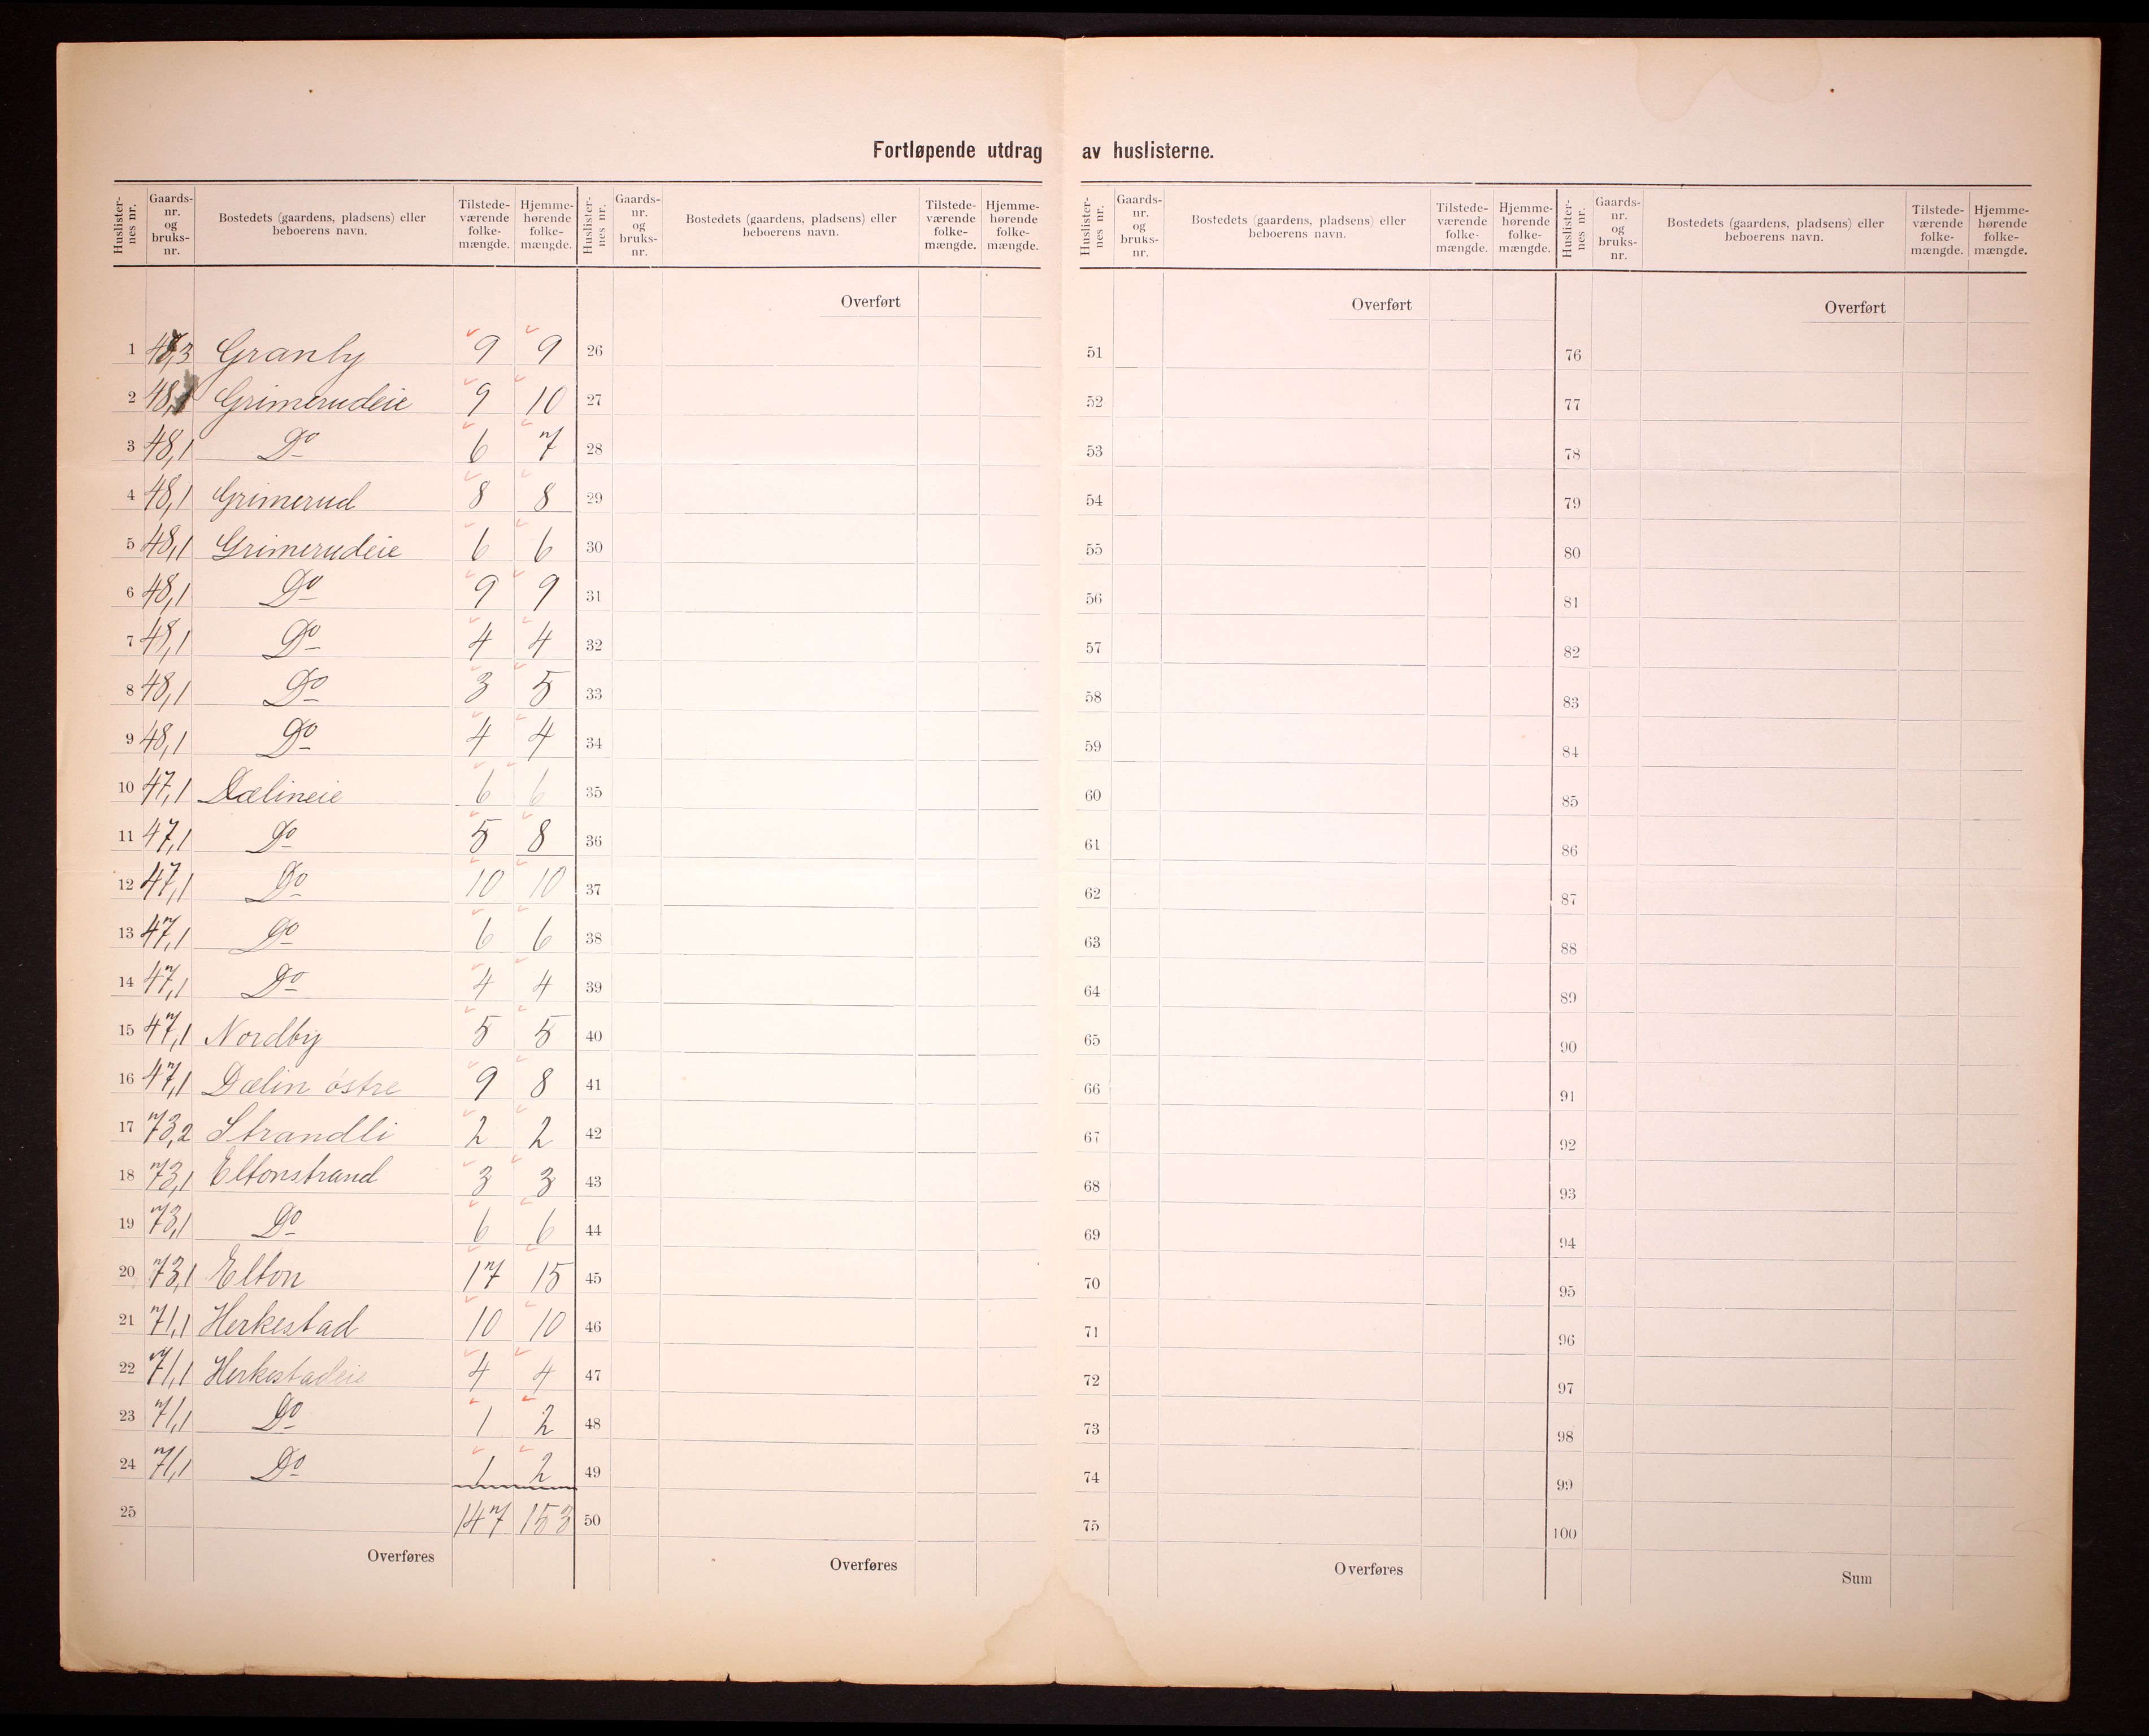 Fortløpende utdrag av huslisterne.
Huslister-nes nr. Gaards-nr. og bruks-nr. Bostedets (gaardens, pladsens) eller beboerens navn. Tilstede-værende folke-mængde. Hjemme-hørende folke-mængde. Huslister-nes nr. Gaards-nr. og bruks-nr. Bostedets (gaardens, pladsens) eller beboerens navn. Tilstede-værende folke-mængde. Hjemme-hørende folke-mængde. Huslister-nes nr. Gaards-nr. og bruks-nr. Bostedets (gaardens, pladsens) eller beboerens navn. Tilstede-værende folke-mængde. Hjemme-hørende folke-mængde. Huslister-nes nr. Gaards-nr. og bruks-nr. Bostedets (gaardens, pladsens) eller beboerens navn. Tilstede-værende folke-mængde. Hjemme-hørende folke-mængde.
Overført Overført Overført
1 47,3 Granby 9 9 26 51 76
2 48,1 Grimerudeie 9 10 27 52 77
3 48,1 Do 6 7 28 53 78
4 48,1 Grimerud 8 8 29 54 79
5 48,1 Grimerudeie 6 6 30 55 80
6 48,1 Do 9 9 31 56 81
7 48,1 Do 4 4 32 57 82
8 48,1 Do 3 5 33 58 83
9 48,1 Do 4 4 34 59 84
10 47,1 Dælineie 6 6 35 60 85
11 47,1 Do 5 8 36 61 86
12 47,1 Do 10 10 37 62 87
13 47,1 Do 6 6 38 63 88
14 47,1 Do 4 4 39 64 89
15 47,1 Nordby 5 5 40 65 90
16 47,1 Dælin østre 9 8 41 66 91
17 73,2 Strandli 2 2 42 67 92
18 73,1 Eltonstrand 3 3 43 68 93
19 73,1 Do 6 6 44 69 94
20 73,1 Elton 17 15 45 70 95
21 71,1 Herkestad 10 10 46 71 96
22 71,1 Herkestadeie 4 4 47 72 97
23 71,1 Do 1 2 48 73 98
24 71,1 Do 1 2 49 74 99
25 147 153 50 75 100
Overføres Overføres Overføres Sum